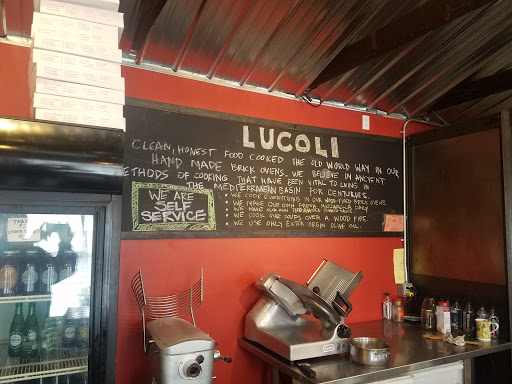 LUCOLI
CLEAN, HONEST FOOD COOKED THE OLD WORLD WAY IN OUR
HAND MADE BRICK OVENS. WE BELIEVE IN ANCIENT
METHODS OF COOKING THAT HAVE BEEN VITAL TO LIVING IN
THE MEDITERRANEAN BASIN FOR CENTURIES.
WE ARE
SELF
SERVICE
• WE COOK EVERYTHING IN OUR WOOD FIRED BRICK OVENS
• WE MAKE OUR OWN FRESH MOZZARELLA DAILY
• WE MAKE OUR OWN
• WE COOK OUR OVER A WOOD FIRE
• WE USE ONLY EXTRA VIRGIN OLIVE OIL.